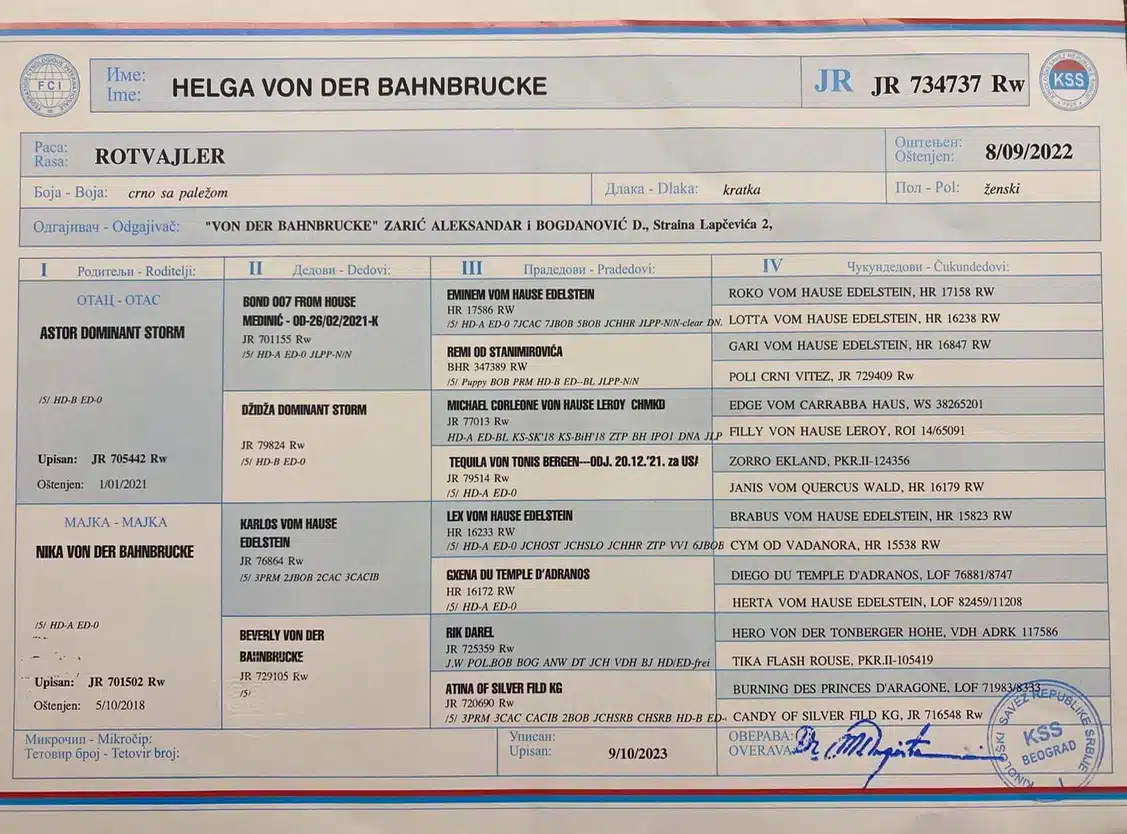 FCI
Име:
Ime:
HELGA VON DER BAHNBRUCKE
JR JR 734737 Rw
KSS
Раса:
Rasa:
ROTVAJLER
Оштењен:
Oštenjen:
8/09/2022
Боја - Boja: crno sa paležom
Длака - Dlaka: kratka
Пол - Pol: ženski
Одгајивач - Odgajivač: "VON DER BAHNBRUCKE" ZARIĆ ALEKSANDAR i BOGDANOVIĆ D., Straina Lapčevića 2,
I Родитељи - Roditelji:
II Дедови - Dedovi:
III Прадедови - Pradedovi:
IV Чукундедови - Čukundedovi:
ОТАЦ - OTAC
ASTOR DOMINANT STORM
/5/ HD-B ED-0
Upisan: JR 705442 Rw
Oštenjen: 1/01/2021
МАЈКА - MAJKA
NIKA VON DER BAHNBRUCKE
/5/ HD-A ED-0
Upisan: JR 701502 Rw
Oštenjen: 5/10/2018
BOND 007 FROM HOUSE
MEDINIĆ - OD-26/02/2021-K
JR 701155 Rw
/5/ HD-A ED-0 JLPP-N/N
DŽIDŽA DOMINANT STORM
JR 79824 Rw
/5/ HD-B ED-0
KARLOS VOM HAUSE
EDELSTEIN
JR 76864 Rw
/5/ 3PRM 2JBOB 2CAC 3CACIB
BEVERLY VON DER
BAHNBRUCKE
JR 729105 Rw
/5/
EMINEM VOM HAUSE EDELSTEIN
HR 17586 RW
/5/ HD-A ED-0 7JCAC 7JBOB 5BOB JCHHR JLPP-N/N-clear DN.
REMI OD STANIMIROVIĆA
BHR 347389 RW
/5/ Puppy BOB PRM HD-B ED--BL JLPP-N/N
MICHAEL CORLEONE VON HAUSE LEROY CHMKD
JR 77013 Rw
HD-A ED-BL KS-SK'18 KS-BiH'18 ZTP BH IPO1 DNA JLP
TEQUILA VON TONIS BERGEN---ODJ. 20.12.'21. za USA
JR 79514 Rw
/5/ HD-A ED-0
LEX VOM HAUSE EDELSTEIN
HR 16233 RW
/5/ HD-A ED-0 JCHOST JCHSLO JCHHR ZTP VV1 6JBOB
GXENA DU TEMPLE D'ADRANOS
HR 16172 RW
/5/ HD-A ED-0
RIK DAREL
JR 725359 Rw
J.W POL.BOB BOG ANW DT JCH VDH BJ HD/ED-frei
ATINA OF SILVER FILD KG
JR 720690 Rw
/5/ 3PRM 3CAC CACIB 2BOB JCHSRB CHSRB HD-B ED-
ROKO VOM HAUSE EDELSTEIN, HR 17158 RW
LOTTA VOM HAUSE EDELSTEIN, HR 16238 RW
GARI VOM HAUSE EDELSTEIN, HR 16847 RW
POLI CRNI VITEZ, JR 729409 Rw
EDGE VOM CARRABBA HAUS, WS 38265201
FILLY VON HAUSE LEROY, ROI 14/65091
ZORRO EKLAND, PKR.II-124356
JANIS VOM QUERCUS WALD, HR 16179 RW
BRABUS VOM HAUSE EDELSTEIN, HR 15823 RW
CYM OD VADANORA, HR 15538 RW
DIEGO DU TEMPLE D'ADRANOS, LOF 76881/8747
HERTA VOM HAUSE EDELSTEIN, LOF 82459/11208
HERO VON DER TONBERGER HOHE, VDH ADRK 117586
TIKA FLASH ROUSE, PKR.II-105419
BURNING DES PRINCES D'ARAGONE, LOF 71983/8333
CANDY OF SILVER FILD KG, JR 716548 Rw
Микрочип - Mikročip:
Тетовир број - Tetovir broj:
Уписан:
Upisan:
9/10/2023
ОВЕРАВА:
OVERAVA:
KINOLOŠKI SAVEZ REPUBLIKE SRBIJE
KSS
BEOGRAD